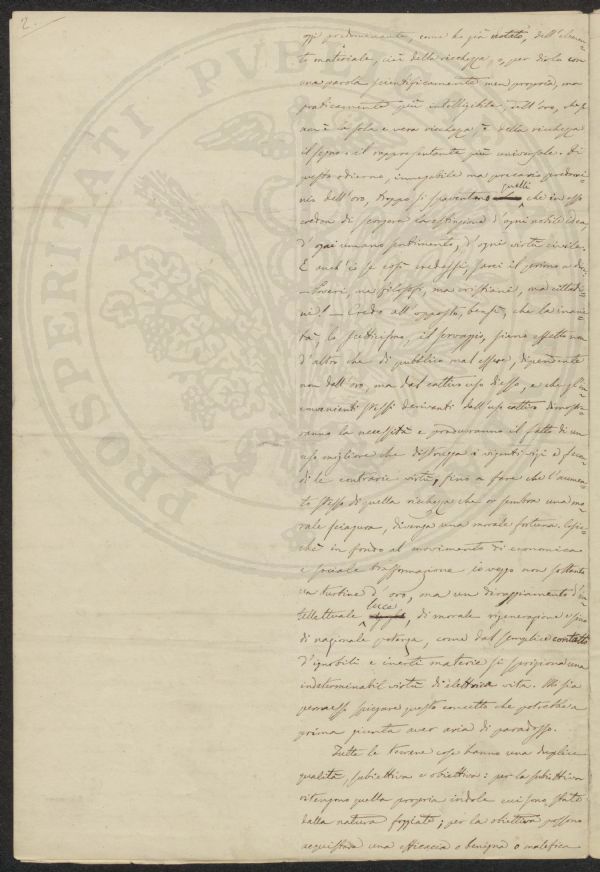 2.
PROSPERITATI PVBL
oggi predominante, come ho già notato, dell'elemen=
to materiale, cioè della ricchezza, o, per dirla con
una parola scientificamente men propria, ma
praticamente più intelligibile, dell'oro, che,
non è la sola e vera ricchezza, è della ricchezza
il segno e il rappresentante più universale. Di
questo odierno, innegabile ma precario predomi=
nio dell'oro, troppo si spaventano quelli che in esso
credon di scorgere la estinzione d'ogni nobile idea,
d'ogni umano sentimento, d'ogni virtù civile.
E anch'io se così credessi, sarei il primo a dire
– Poveri, ma filosofi, ma cristiani, ma cittadi=
ni! – Credo all'opposto, bensì, che la inani=
tà, lo scetticismo, il servaggio, siano effetto non
d'altro che di pubblico mal essere, dipendente
non dall'oro, ma dal cattivo uso di esso, e che gl'in=
convenienti stessi derivanti dall'uso cattivo dimostre=
ranno la necessità e produrranno il fatto di un
uso migliore che distrugga i vigenti vizi e fecon=
di le contrarie virtù, fino a fare che l'aumen=
to stesso di quella ricchezza che or sembra una mo=
rale sciagura, divenga una morale fortuna. Cosic=
chè in fondo al movimento di economica
e sociale trasformazione io veggo non soltanto
un turbine d'oro, ma un irraggiamento d'in=
tellettuale luce, di morale rigenerazione e sino
di nazionale potenza, come dal semplice contatto
d'ignobili e inerti materie si sprigiona una
indeterminabil virtù di elettrica vita. Mi sia
permesso spiegare questo concetto che potrebbe a
prima giunta aver aria di paradosso.
Tutte le terrene cose hanno una duplice
qualità, subiettiva e obiettiva: per la subiettiva
ritengono quella propria indole cui sono state
dalla natura foggiate; per la obiettiva possono
acquistare una efficacia o benigna o malefica